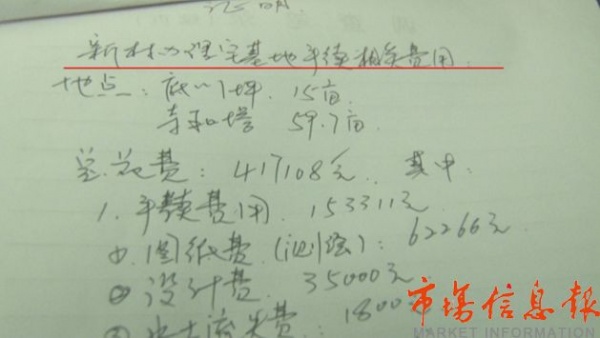 新村办理宅基地手续相关费用.
地点: 底以1坪, 15亩.
寺和塔 59.7亩.
总花费: 417108元. 其中.
1. 手续费用. 153311元
①.图纸费(测绘): 62266元
②设计费. 35000元
水土流失费: 1800
市场信息報
MARKET INFORMATION